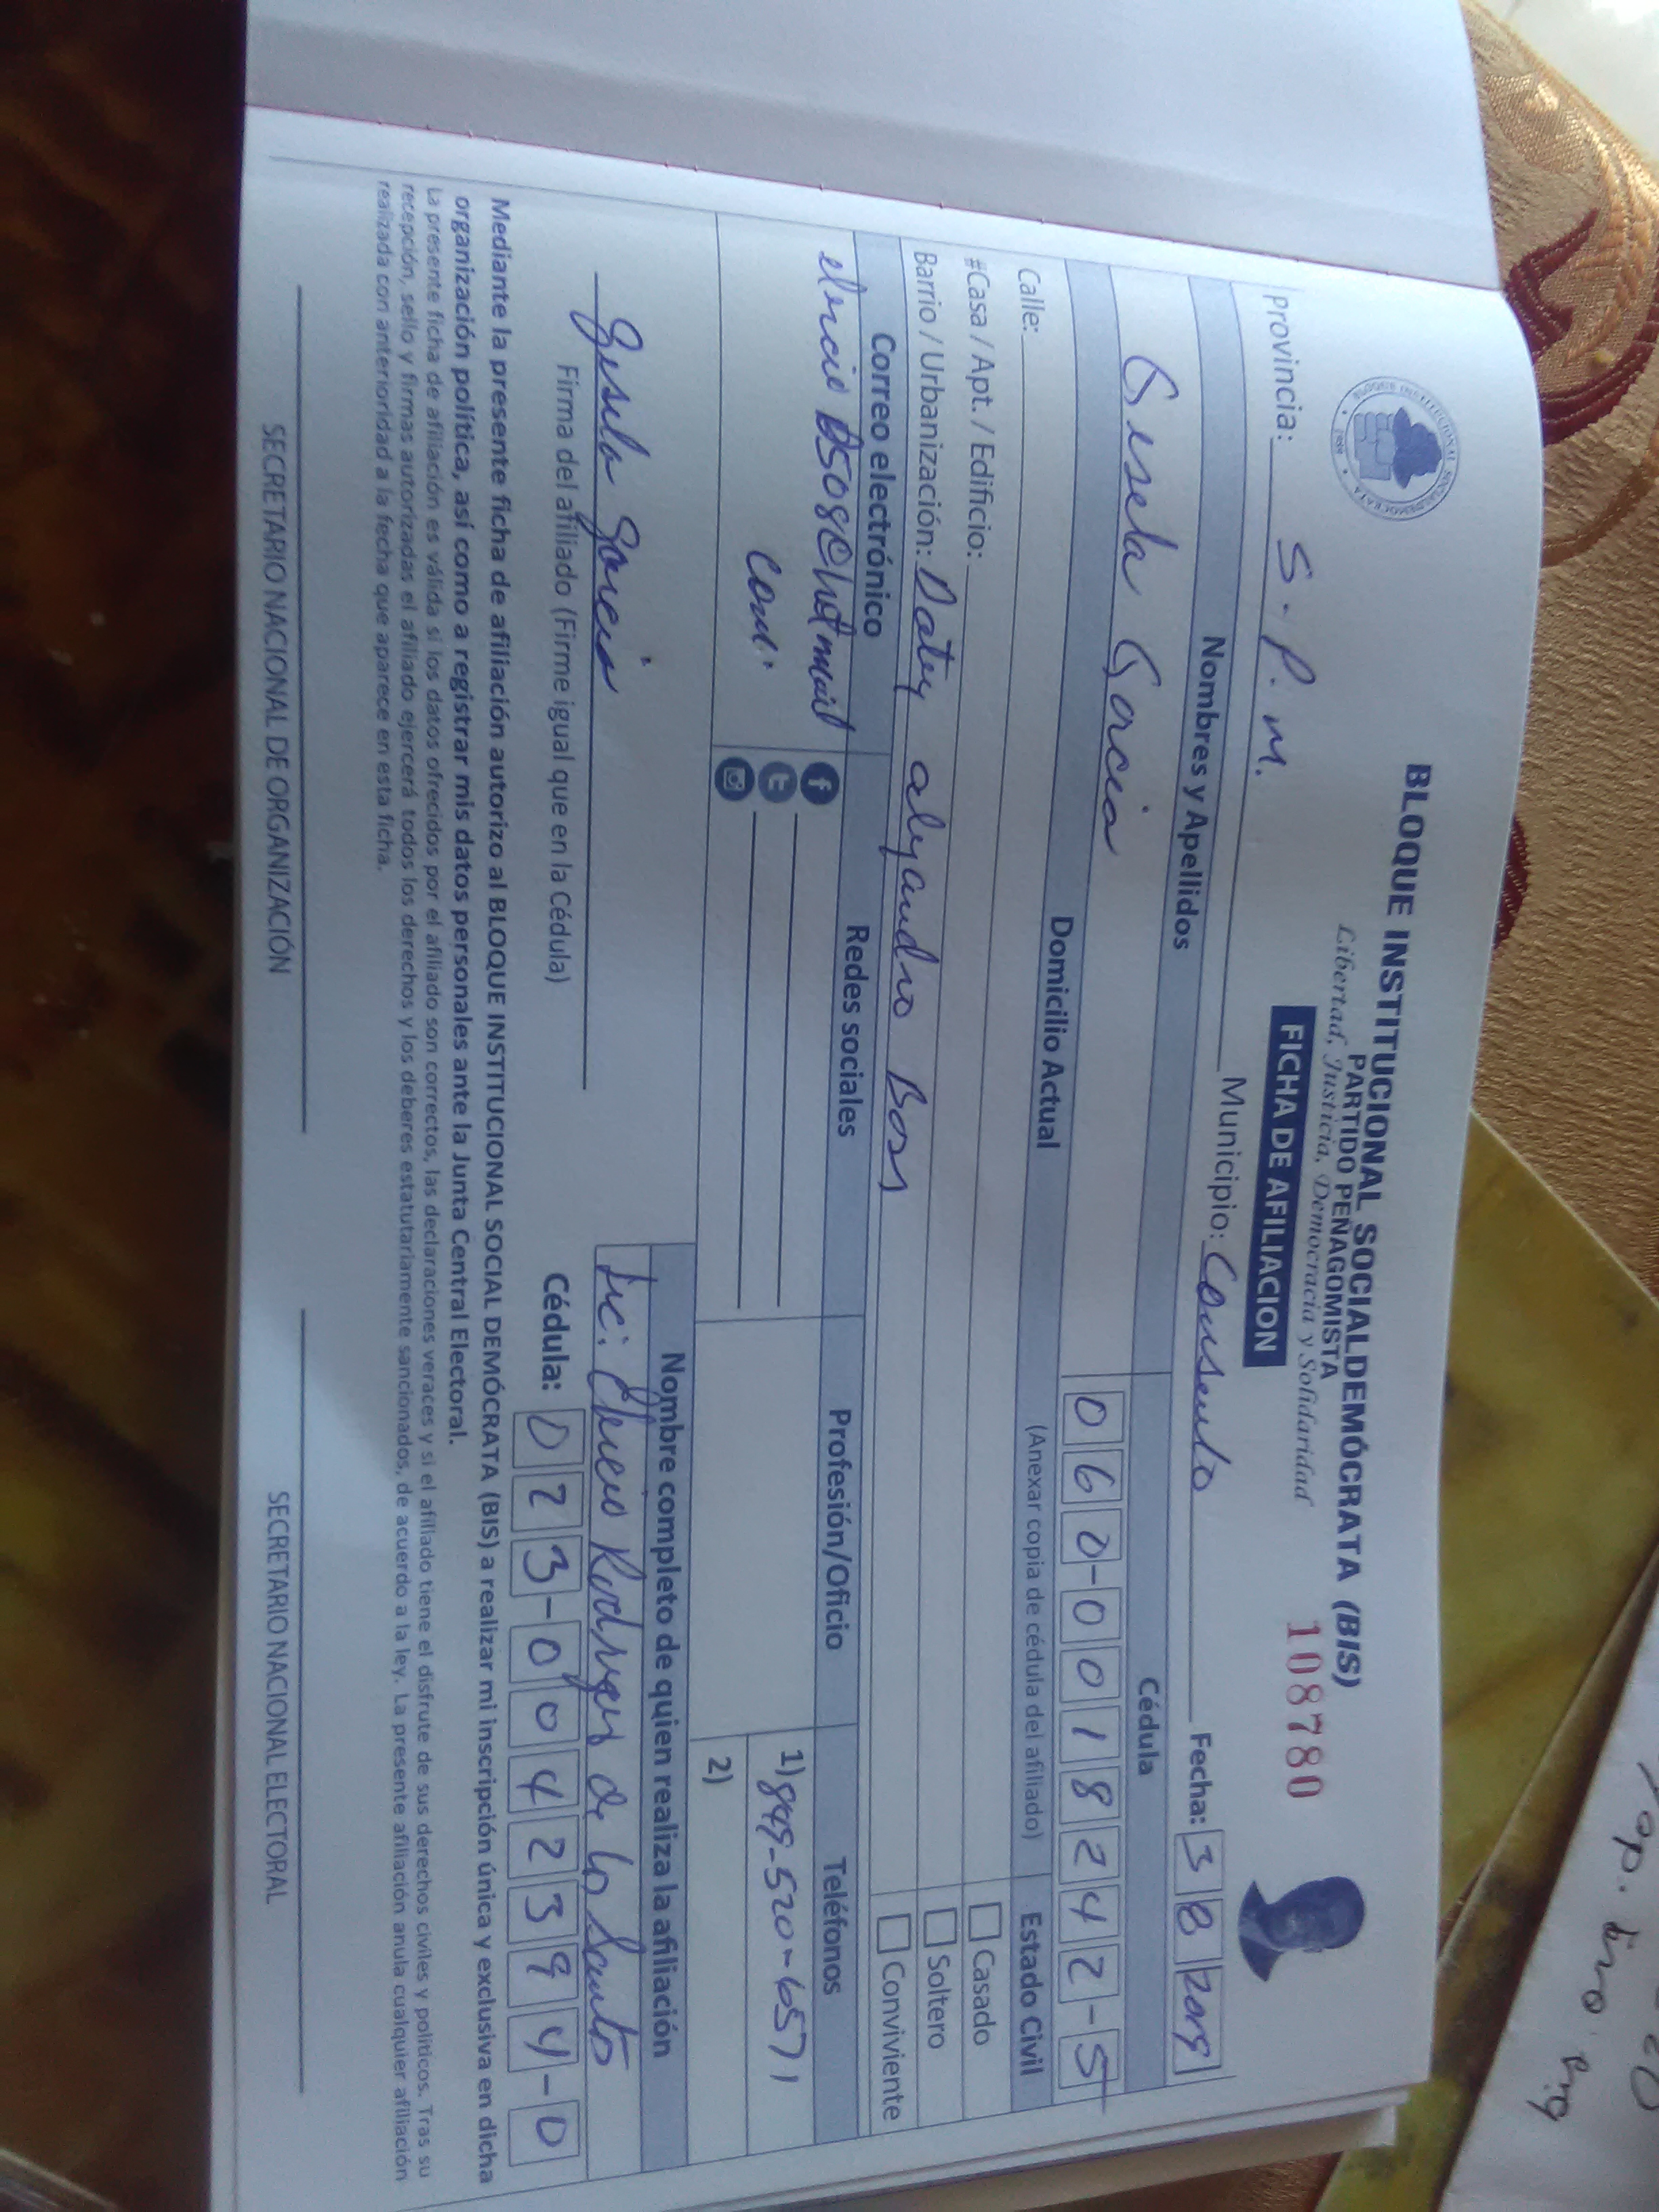 BLOQUE INSTITUCIONAL SOCIALDEMÓCRATA (BIS)
PARTIDO PEÑAGOMISTA
Libertad, Justicia, Democracia y Solidaridad
FICHA DE AFILIACION
108780
Provincia: S. P. M. Municipio: Consuelo Fecha: 3 8 2019
Nombres y Apellidos Cédula
Gisela Garcia 060-0018242-5
Domicilio Actual (Anexar copia de cédula del afiliado) Estado Civil
Calle:
#Casa / Apt. / Edificio: Casado
Barrio / Urbanización: alejandro Bass Soltero
Conviviente
Correo electrónico Redes sociales Profesión/Oficio Teléfonos
elucio 0508@hotmail 1) 849-520-6571
com. 2)
Nombre completo de quien realiza la afiliación
Gisela Garcia Lic. Rodriguez de los Santos
Firma del afiliado (Firme igual que en la Cédula) Cédula: 023-0042394-0
Mediante la presente ficha de afiliación autorizo al BLOQUE INSTITUCIONAL SOCIAL DEMÓCRATA (BIS) a realizar mi inscripción única y exclusiva en dicha
organización política, así como a registrar mis datos personales ante la Junta Central Electoral.
La presente ficha de afiliación es válida si los datos ofrecidos por el afiliado son correctos, las declaraciones veraces y si el afiliado tiene el disfrute de sus derechos civiles y políticos. Tras su
recepción, sello y firmas autorizadas el afiliado ejercerá todos los derechos y los deberes estatutariamente sancionados, de acuerdo a la ley. La presente afiliación anula cualquier afiliación
realizada con anterioridad a la fecha que aparece en esta ficha.
SECRETARIO NACIONAL DE ORGANIZACIÓN SECRETARIO NACIONAL ELECTORAL